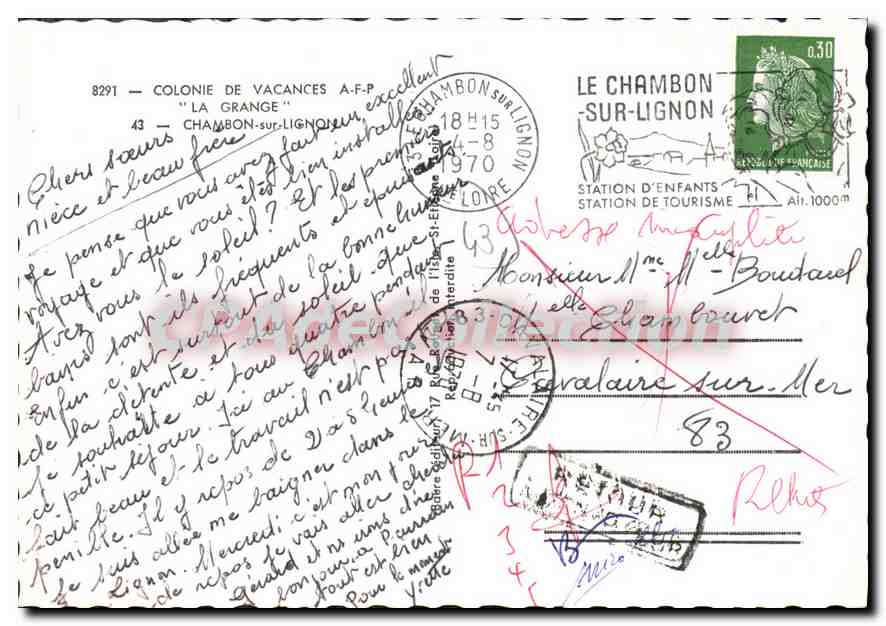 8291 — COLONIE DE VACANCES A-F-P
" LA GRANGE "
43 — CHAMBON-sur-LIGNON
Chers sœurs
nièce et beau frère
Je pense que vous avez fait un excellent
voyage et que vous êtes bien installés
Avez vous le soleil ? Et les premiers
bains sont ils fréquents et
Enfin c'est surtout de la bonne humeur
de la détente et du soleil que
je souhaite à tous quatre pendant
ce petit séjour. Ici au Chambon il
fait beau et le travail n'est pas
pénible. Il y repos de 2 à 5 heures
Je suis allée me baigner dans le
Lignon. Mercredi c'est mon jour
de repos je vais aller chez
Gérard et vous dire
bonjour à
tout est bien
Pour le moment
Yvette
CHAMBON SUR LIGNON
18H15
4-8
1970
HTE LOIRE
LE CHAMBON
-SUR-LIGNON
STATION D'ENFANTS
STATION DE TOURISME
Alt. 1000m
0,30
REPUBLIQUE FRANÇAISE
Adresse incomplète
43
Monsieur Mme Melle Boudarel
Melle Chambouvet
Cavalaire sur-Mer
83
CAVALAIRE-SUR-MER
17-45
7-8
VAR
17 Rue de l'Isle St-Etienne (Loire)
Reproduction interdite
CPArdeCollection
R 1
2
3
4
5
RETOUR
Rebuts